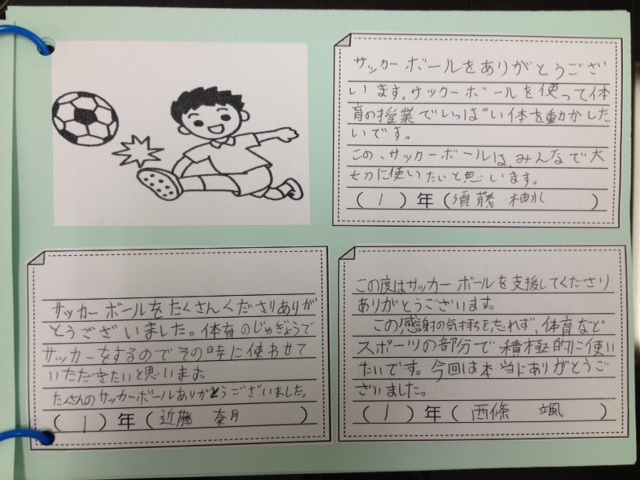 サッカーボールをありがとうござ
います。サッカーボールを使って体
育の授業でいっぱい体を動かした
いです。
この、サッカーボールは、みんなで大
切に使いたいと思います。
(1)年(須藤 柚
サッカーボールをたくさんくださりありが
とうございました。体育のじゅぎょうで
サッカーをするのでその時に使わせて
いただきたいと思います。
たくさんのサッカーボールありがとうございました。
(1)年(近藤 奈月)
この度はサッカーボールを支援してくださり
ありがとうございます。
この感射の気持ちを忘れず、体育など
スポーツの部分で積極的に使い
たいです。今回は本当にありがとうご
ざいました。
(1)年(西條 颯)